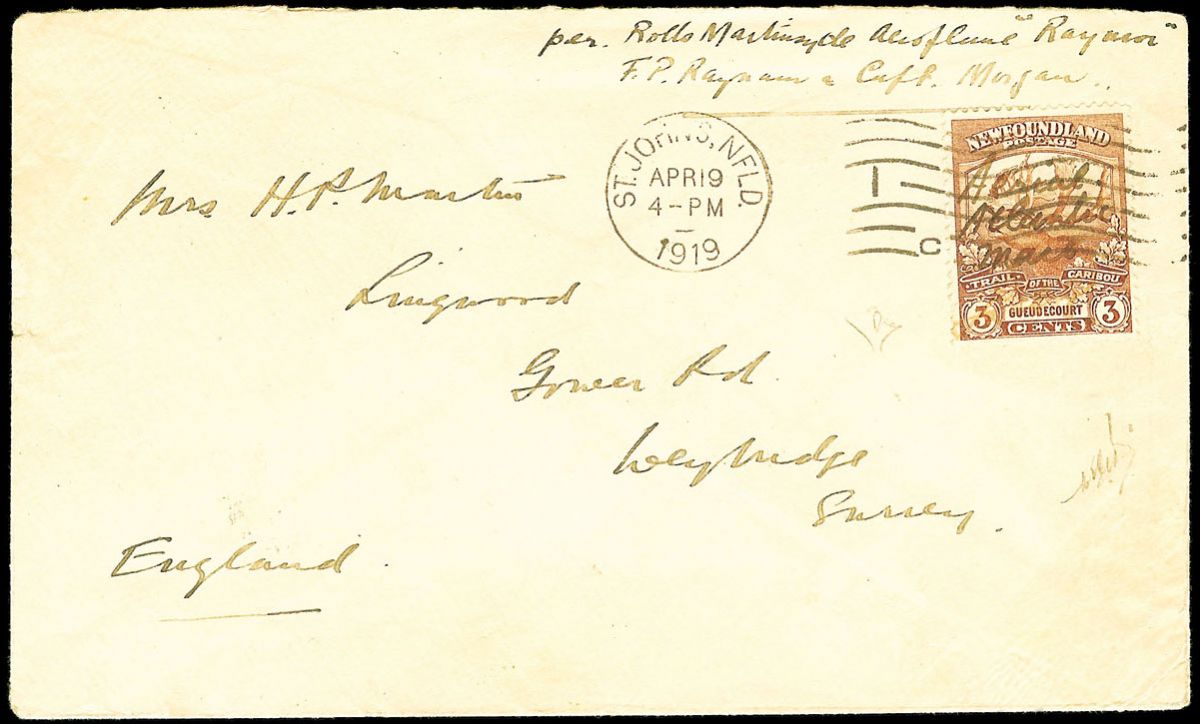 per. Rolls Martinsyde Aeroplane "Raymor"
F. P. Raynham & Capt. Morgan.
ST. JOHN'S, NFLD.
APR 19
4-PM
1919
1
C
NEWFOUNDLAND
POSTAGE
Aerial
Atlantic
Mail
TRAIL OF THE CARIBOU
3 GUEUDECOURT 3
CENTS
Mrs H. P. Martin
Lingwood
Gower Rd.
Weybridge
Surrey.
England.